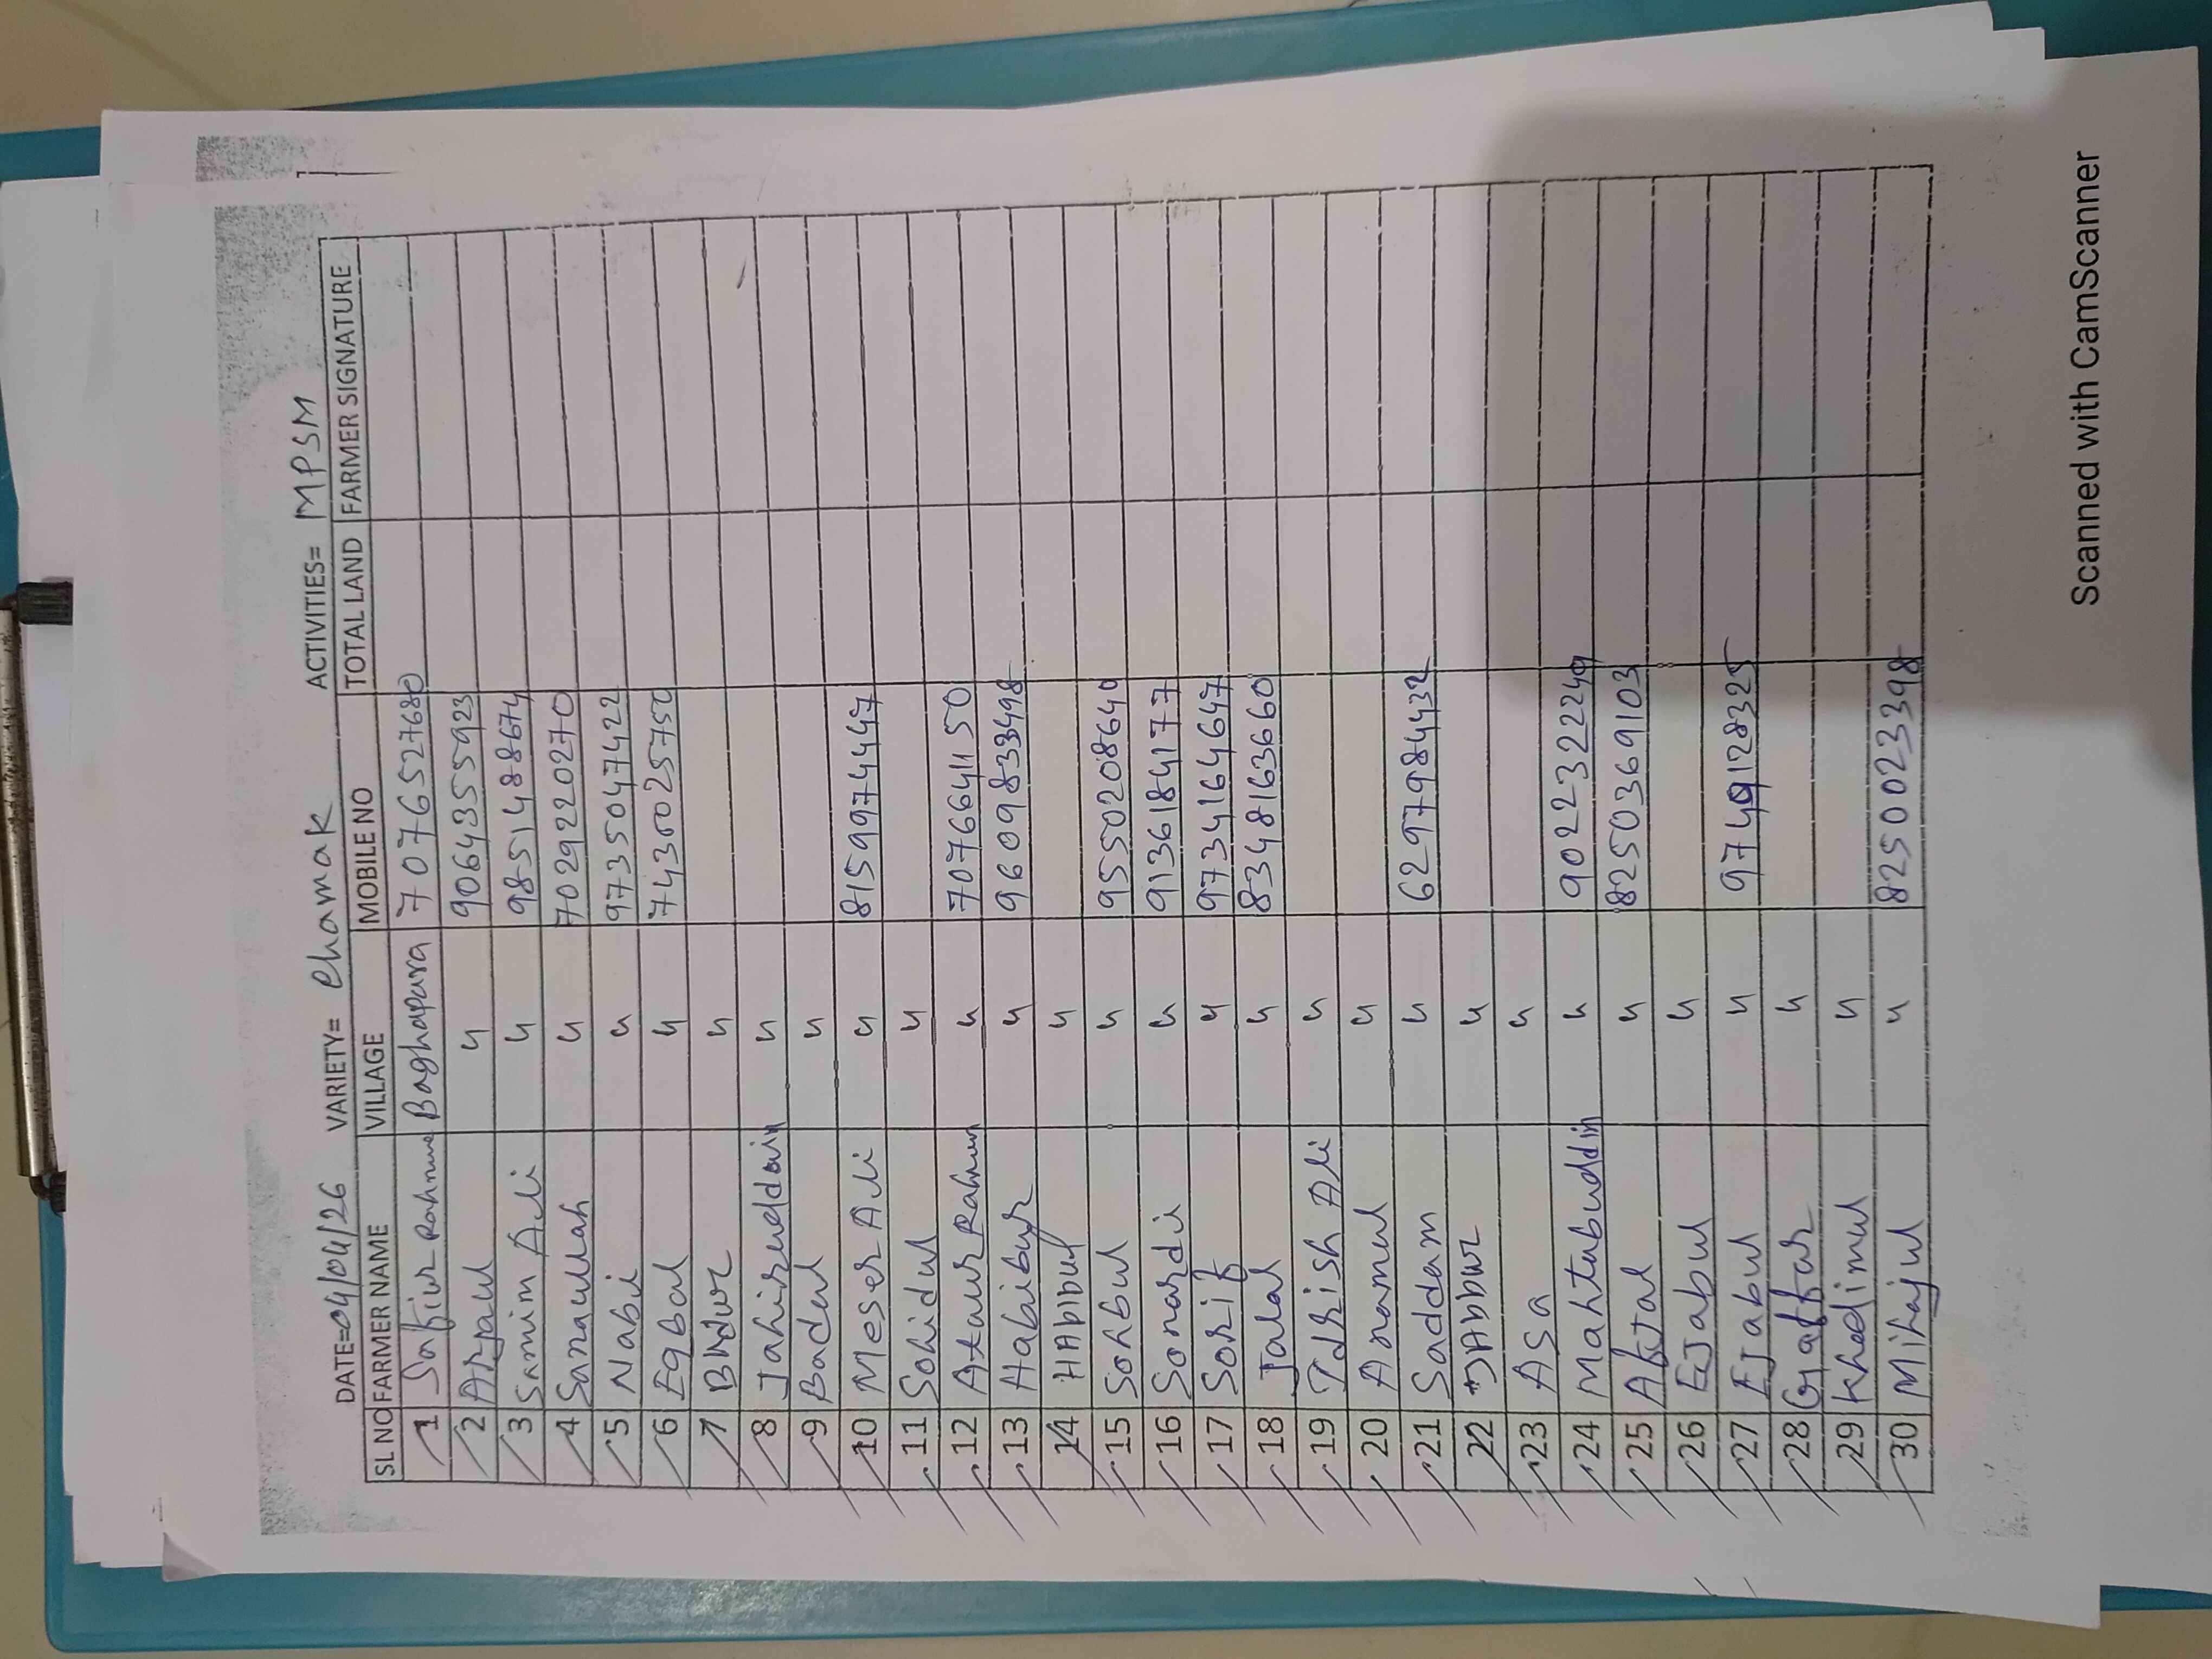 DATE=04/04/26 VARIETY= Chamak ACTIVITIES= MPSM
SL NO FARMER NAME VILLAGE MOBILE NO TOTAL LAND FARMER SIGNATURE
1 Safiur Rahman Baghapara 7076527680
2 Arjaul " 9064355923
3 Samim Ali " 9851488674
4 Sanaullah " 7029220270
5 Nabi " 9735047422
6 Eqbal " 7430025750
7 "
8 Jahiruddain "
9 Badul "
10 Meser Ali " 8159974447
11 Sohidul "
12 Ataur Rahman " 7076641150
13 Habibur " 9609833498
14 HAbibul "
15 Sohbul " 9550208640
16 Sonardi " 9136184177
17 Sorif " 9734164647
18 Jalal " 8348163660
19 Idrish Ali "
20 Anamul "
21 Saddam " 6297984432
22 JAbbur "
23 ASa "
24 Mahtabuddin " 9022322249
25 Afjal " 8250369103
26 EJabul "
27 EJabul " 9749128325
28 Gaffar "
29 Khadimul "
30 Mihajul " 8250023398
Scanned with CamScanner